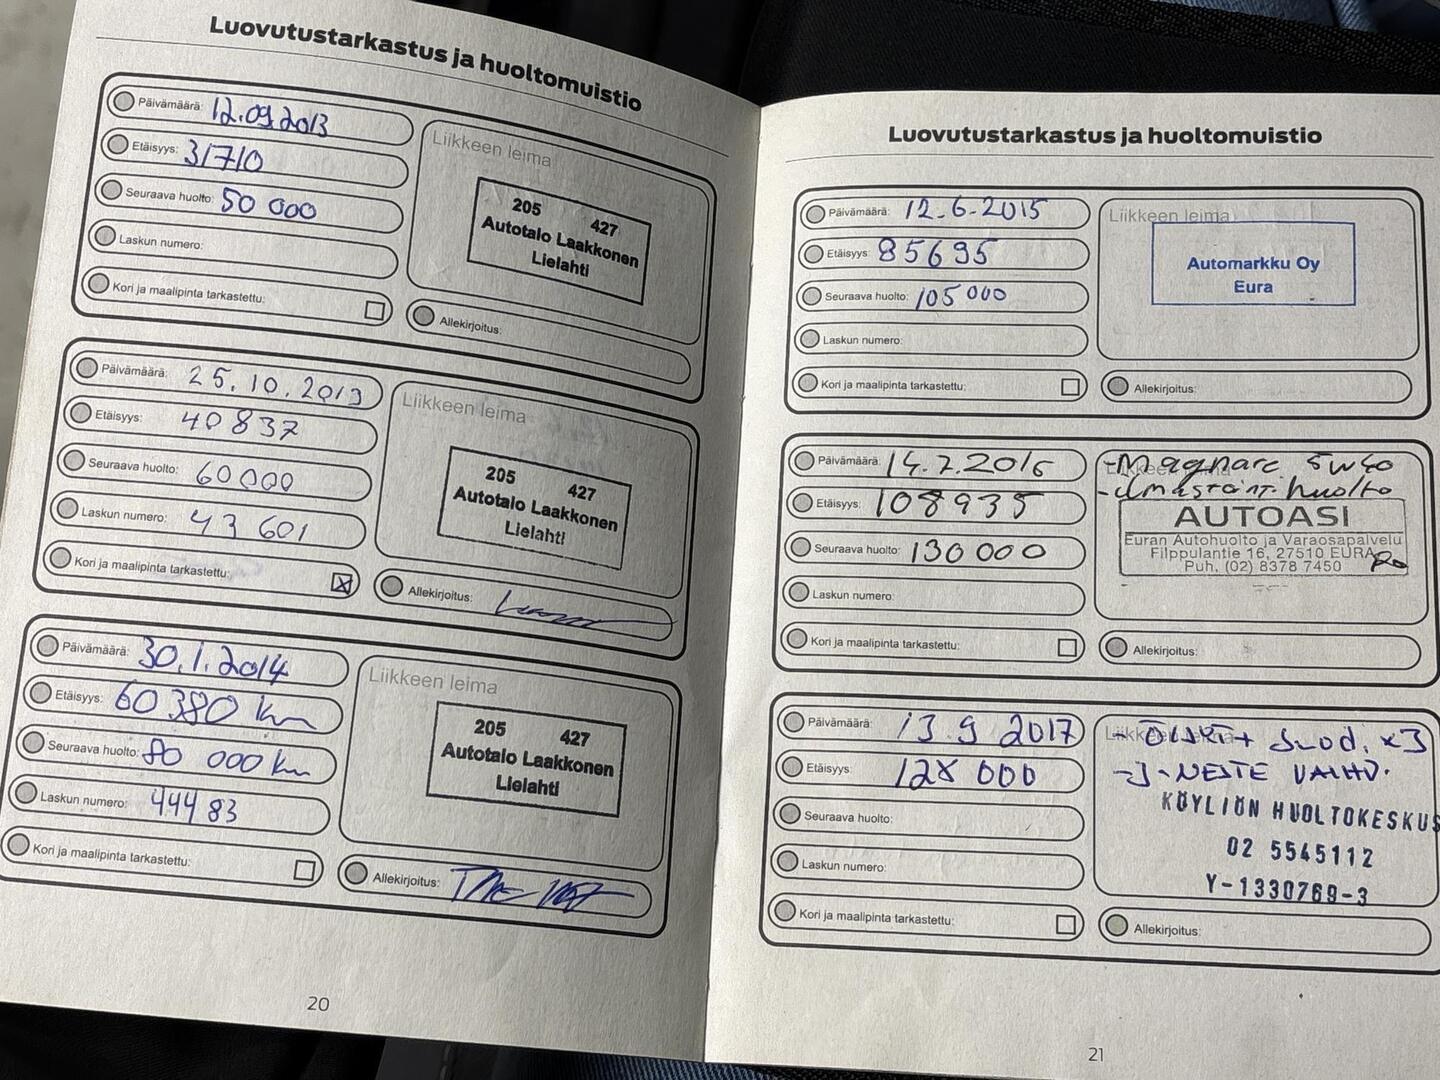 Luovutustarkastus ja huoltomuistio
Päivämäärä: 12.09.2013
Etäisyys: 31710
Seuraava huolto: 50 000
Laskun numero:
Kori ja maalipinta tarkastettu:
Liikkeen leima
205 427
Autotalo Laakkonen
Lielahti
Allekirjoitus:
Päivämäärä: 25.10.2013
Etäisyys: 40837
Seuraava huolto: 60000
Laskun numero: 43601
Kori ja maalipinta tarkastettu:
Liikkeen leima
205 427
Autotalo Laakkonen
Lielahti
Allekirjoitus:
Päivämäärä: 30.1.2014
Etäisyys: 60380 km
Seuraava huolto: 80 000 km
Laskun numero: 44483
Kori ja maalipinta tarkastettu:
Liikkeen leima
205 427
Autotalo Laakkonen
Lielahti
Allekirjoitus:
20
Luovutustarkastus ja huoltomuistio
Päivämäärä: 12.6.2015
Etäisyys: 85695
Seuraava huolto: 105000
Laskun numero:
Kori ja maalipinta tarkastettu:
Liikkeen leima
Automarkku Oy
Eura
Allekirjoitus:
Päivämäärä: 14.7.2016
Etäisyys: 108935
Seuraava huolto: 130000
Laskun numero:
Kori ja maalipinta tarkastettu:
Liikkeen leima
-Magnatec 5w40
-ilmastoint. huolto
AUTOASI
Euran Autohuolto ja Varaosapalvelu
Filppulantie 16, 27510 EURA
Puh. (02) 8378 7450
Allekirjoitus:
Päivämäärä: 13.9 2017
Etäisyys: 128 000
Seuraava huolto:
Laskun numero:
Kori ja maalipinta tarkastettu:
Liikkeen leima
- ÖLJYT + Suod. x3
-J-NESTE VAIHD.
KÖYLIÖN HUOLTOKESKUS
02 5545112
Y-1330769-3
Allekirjoitus:
21